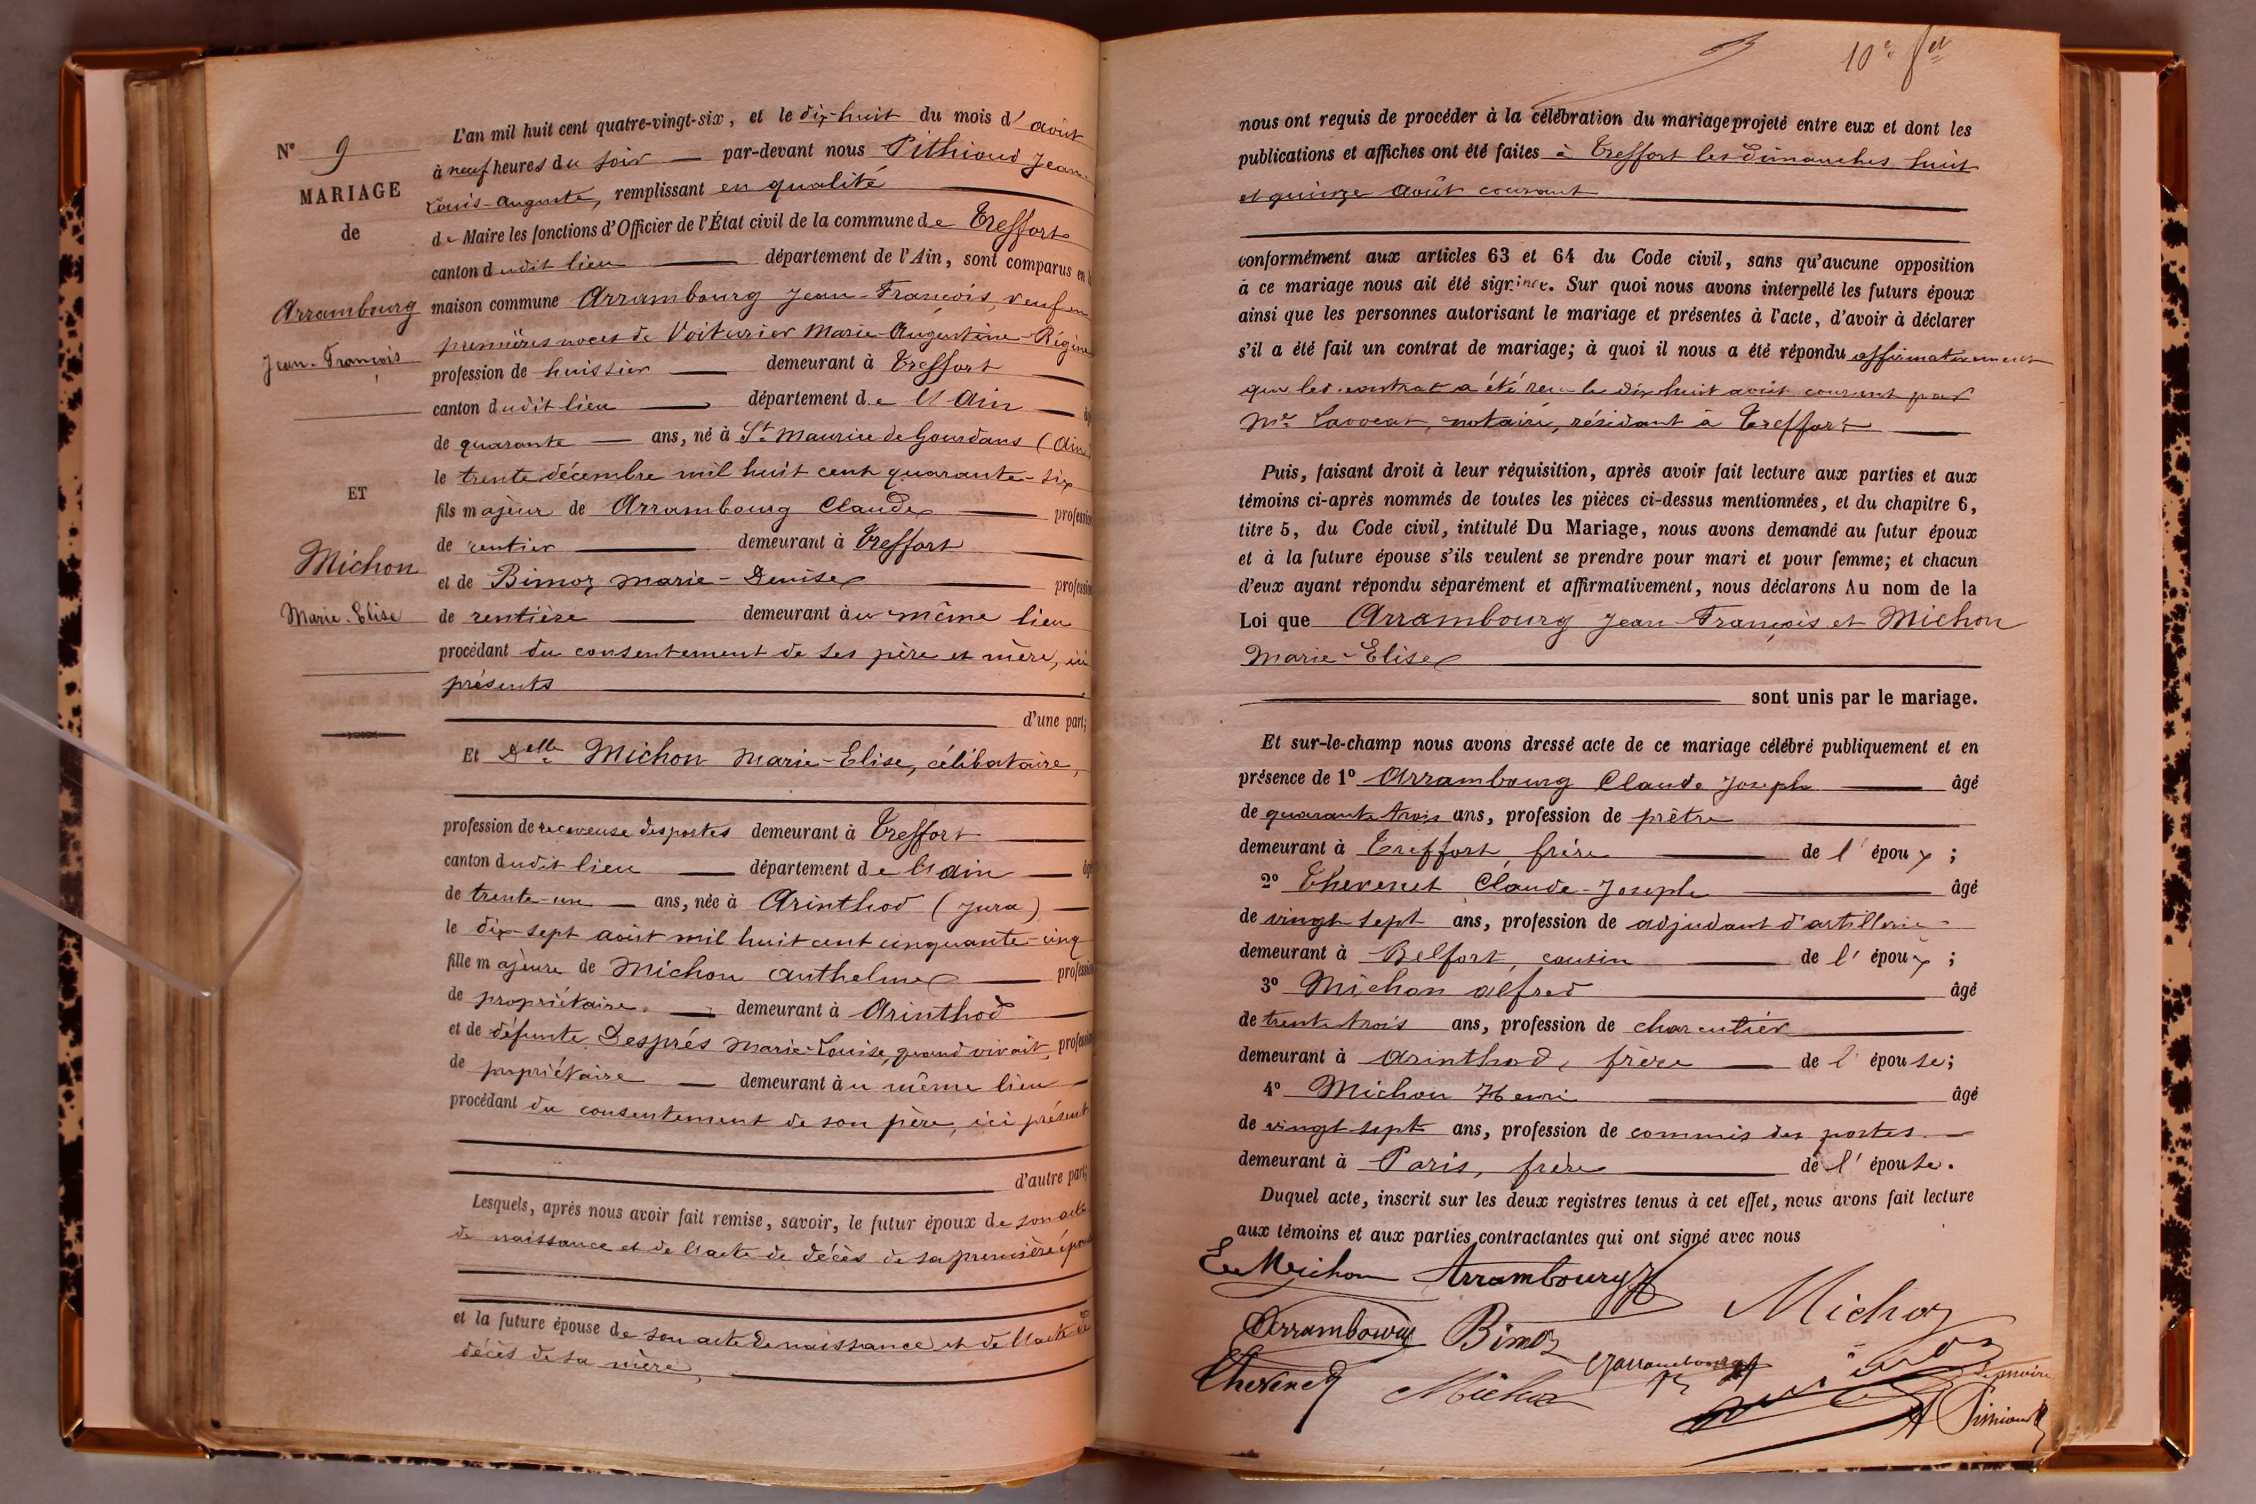 N° 9
MARIAGE
de
Arrambourg
Jean-François
ET
Michon
Marie-Elise
L'an mil huit cent quatre-vingt-six, et le dix-huit du mois d'août
à neuf heures du soir par-devant nous Pithioud Jean-
Louis-Auguste, remplissant en qualité
de Maire les fonctions d'Officier de l'État civil de la commune de Treffort
canton dudit lieu département de l'Ain, sont comparus en la
maison commune Arrambourg Jean-François, veuf en
premières noces de Voiturier Marie-Augustine-Régine
profession de huissier demeurant à Treffort
canton dudit lieu département de l'Ain âgé
de quarante ans, né à St Maurice de Gourdans (Ain)
le trente décembre mil huit cent quarante-six
fils majeur de Arrambourg Claude profession
de rentier demeurant à Treffort
et de Bimoz Marie-Denise profession
de rentière demeurant au même lieu
procédant du consentement de ses père et mère, ici
présents
d'une part;
Et Delle Michon Marie-Elise, célibataire,
profession de receveuse des postes demeurant à Treffort
canton dudit lieu département de l'Ain âgé
de trente-un ans, née à Arinthod (Jura)
le dix-sept août mil huit cent cinquante-cinq
fille majeure de Michon Anthelme profession
de propriétaire demeurant à Arinthod
et de défunte Després Marie-Louise, quand vivait, profession
de propriétaire demeurant au même lieu
procédant du consentement de son père, ici présent
d'autre part;
Lesquels, après nous avoir fait remise, savoir, le futur époux de son acte
de naissance et de l'acte de décès de sa première épouse
et la future épouse de son acte de naissance et de l'acte de
décès de sa mère,
10e
nous ont requis de procéder à la célébration du mariage projeté entre eux et dont les
publications et affiches ont été faites à Treffort les dimanches huit
et quinze août courant
conformément aux articles 63 et 64 du Code civil, sans qu'aucune opposition
à ce mariage nous ait été signifiée. Sur quoi nous avons interpellé les futurs époux
ainsi que les personnes autorisant le mariage et présentes à l'acte, d'avoir à déclarer
s'il a été fait un contrat de mariage; à quoi il nous a été répondu affirmativement
que led. contrat a été reçu le dix huit août courant par
Me Lavocat, notaire, résidant à Treffort
Puis, faisant droit à leur réquisition, après avoir fait lecture aux parties et aux
témoins ci-après nommés de toutes les pièces ci-dessus mentionnées, et du chapitre 6,
titre 5, du Code civil, intitulé Du Mariage, nous avons demandé au futur époux
et à la future épouse s'ils veulent se prendre pour mari et pour femme; et chacun
d'eux ayant répondu séparément et affirmativement, nous déclarons Au nom de la
Loi que Arrambourg Jean-François et Michon
Marie-Elise
sont unis par le mariage.
Et sur-le-champ nous avons dressé acte de ce mariage célébré publiquement et en
présence de 1° Arrambourg Claude Joseph âgé
de quarante trois ans, profession de prêtre
demeurant à Treffort, frère de l'époux ;
2° Thevenet Claude-Joseph âgé
de vingt sept ans, profession de adjudant d'artillerie
demeurant à Belfort, cousin de l'époux ;
3° Michon Alfred âgé
de trente trois ans, profession de charcutier
demeurant à Arinthod, frère de l'épouse;
4° Michon Henri âgé
de vingt sept ans, profession de commis des postes
demeurant à Paris, frère de l'épouse.
Duquel acte, inscrit sur les deux registres tenus à cet effet, nous avons fait lecture
aux témoins et aux parties contractantes qui ont signé avec nous
E Michon Arrambourg
Michon
Arrambourg Bimoz
Thevenet Michon